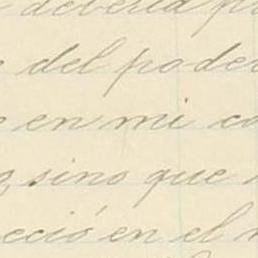 debería
del poder
en mi
sino que
cció en el